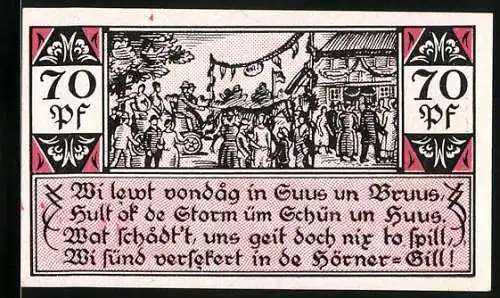 70 Pf
70 Pf
Wi lewt vondåg in Suus un Bruus,
Hult ok de Storm üm Schün un Huus.
Wat schådt't, uns geit doch nix to spill,
Wi sünd versekert in de Hörner=Gill!